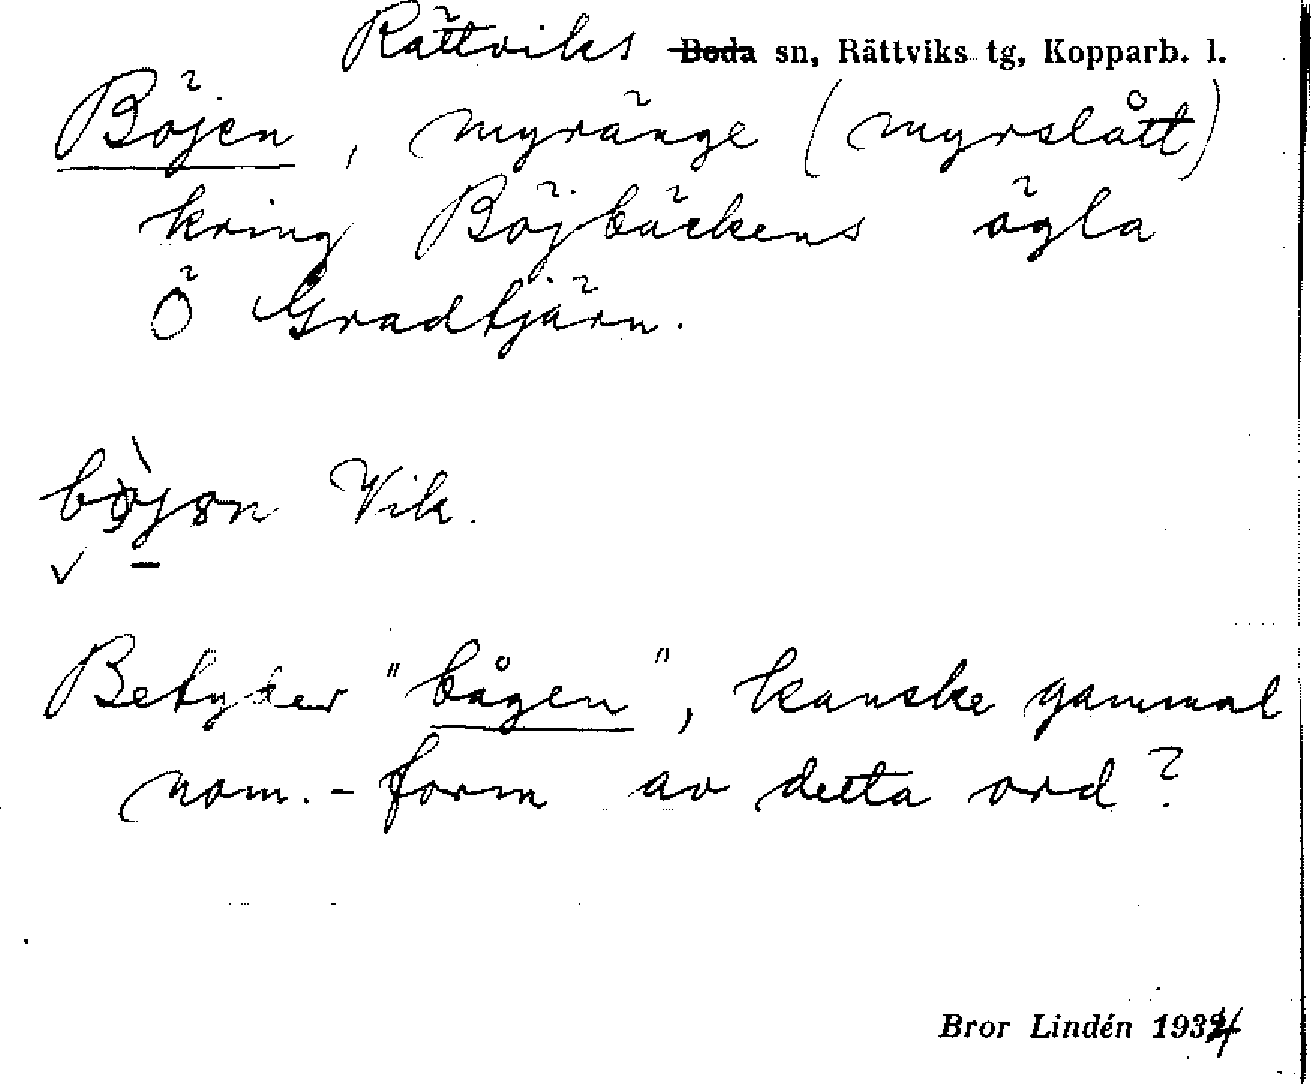 Rättviks ~~Boda~~ sn, Rättviks tg, Kopparb. l.
Böjen, myränge (myrslått)
kring Böjbäckens ögla
Ö Gradtjärn.
Vik.
Betyder "bågen", kanske gammal
nom.-form av detta ord?
Bror Lindén 1934